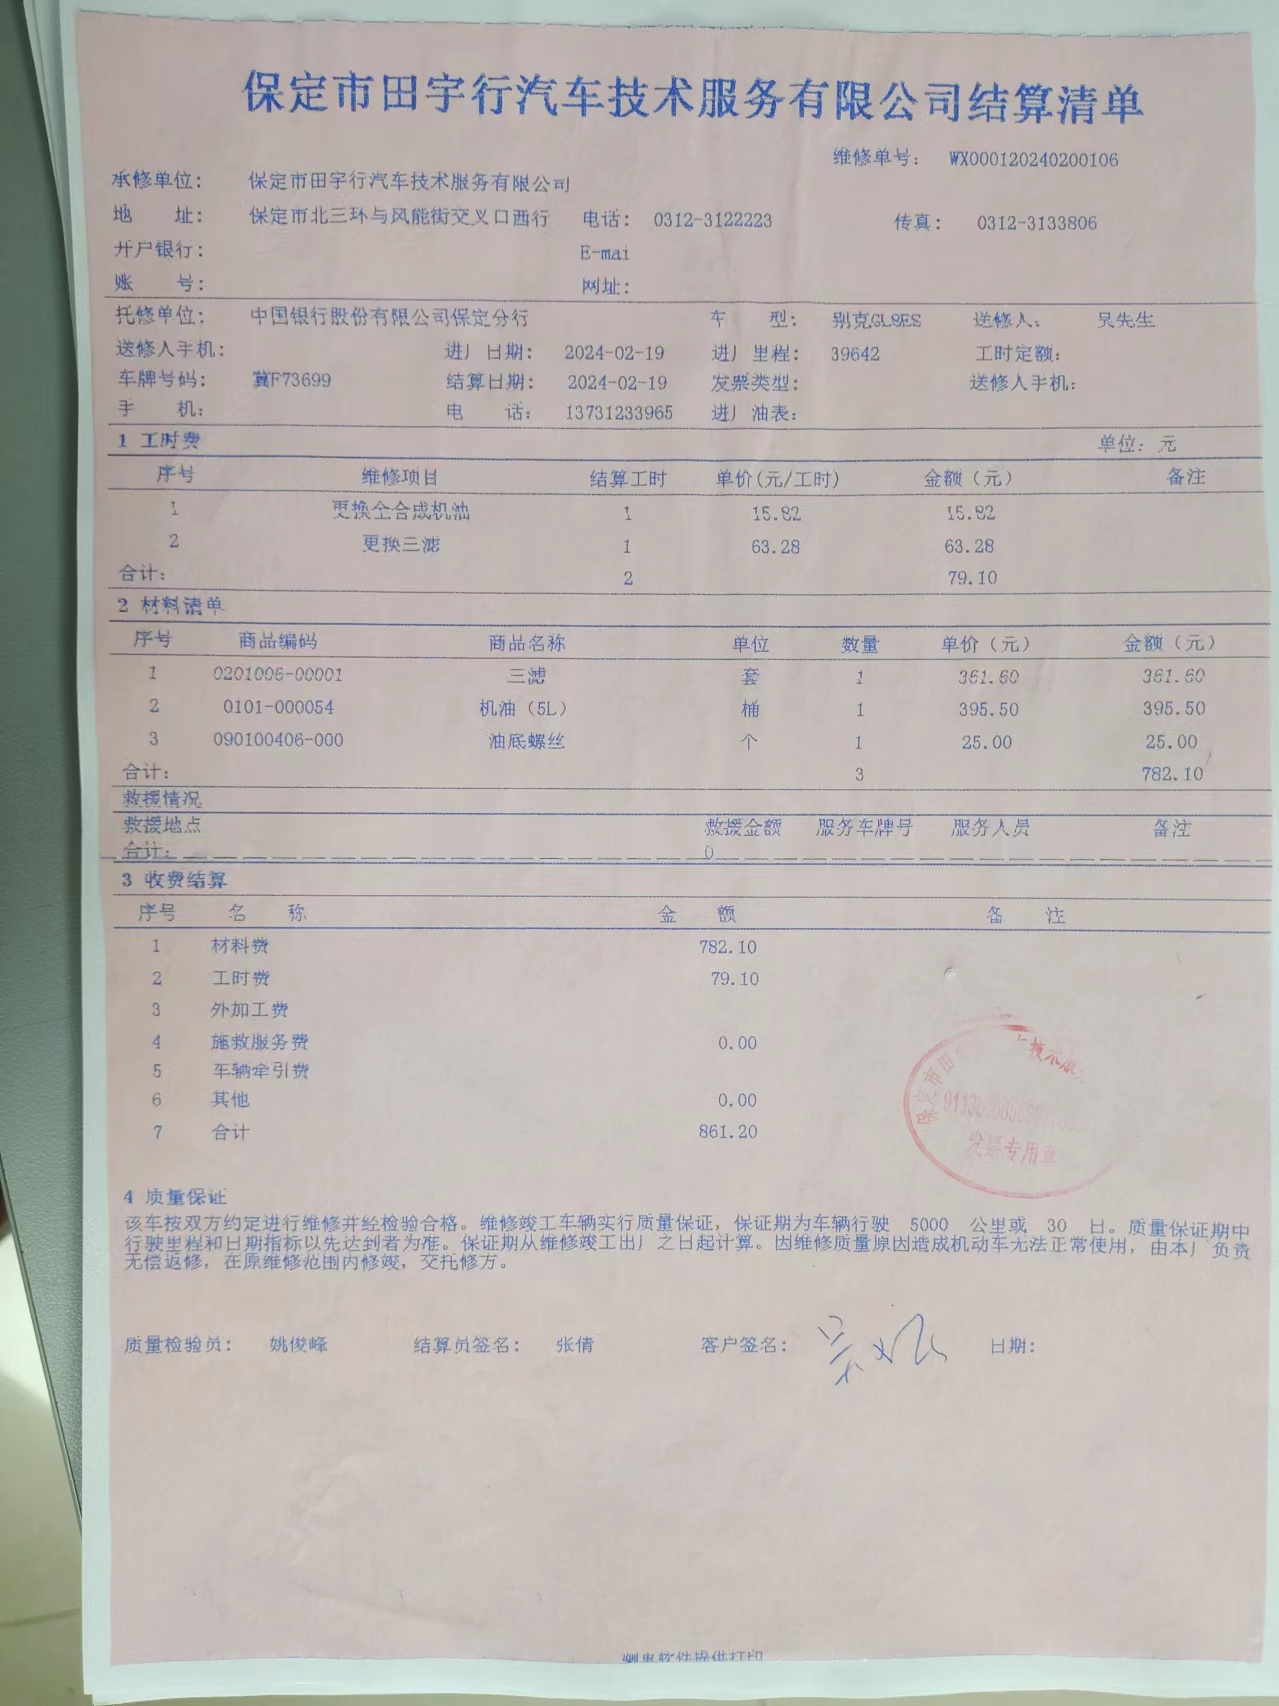 保定市田宇行汽车技术服务有限公司结算清单
维修单号： WX000120240200106
承修单位： 保定市田宇行汽车技术服务有限公司
地 址： 保定市北三环与风能街交叉口西行 电话： 0312-3122223 传真： 0312-3133806
开户银行： E-mai
账 号： 网址：
托修单位： 中国银行股份有限公司保定分行 车 型： 别克GL8ES 送修人： 吴先生
送修人手机： 进厂日期： 2024-02-19 进厂里程： 39642 工时定额：
车牌号码： 冀F73699 结算日期： 2024-02-19 发票类型： 送修人手机：
手 机： 电 话： 13731233965 进厂油表：
1 工时费 单位：元
序号 维修项目 结算工时 单价(元/工时) 金额（元） 备注
1 更换全合成机油 1 15.82 15.82
2 更换三滤 1 63.28 63.28
合计： 2 79.10
2 材料清单
序号 商品编码 商品名称 单位 数量 单价（元） 金额（元）
1 0201006-00001 三滤 套 1 361.60 361.60
2 0101-000054 机油（5L） 桶 1 395.50 395.50
3 090100406-000 油底螺丝 个 1 25.00 25.00
合计： 3 782.10
救援情况
救援地点 救援金额 服务车牌号 服务人员 备注
合计： 0
3 收费结算
序号 名 称 金 额 备 注
1 材料费 782.10
2 工时费 79.10
3 外加工费
4 施救服务费 0.00
5 车辆牵引费
6 其他 0.00
7 合计 861.20
保定市田 技术服
发票专用章
4 质量保证
该车按双方约定进行维修并经检验合格。维修竣工车辆实行质量保证，保证期为车辆行驶 5000 公里或 30 日。质量保证期中
行驶里程和日期指标以先达到者为准。保证期从维修竣工出厂之日起计算。因维修质量原因造成机动车无法正常使用，由本厂负责
无偿返修，在原维修范围内修竣，交托修方。
质量检验员： 姚俊峰 结算员签名： 张倩 客户签名： 日期：
软件提供打印